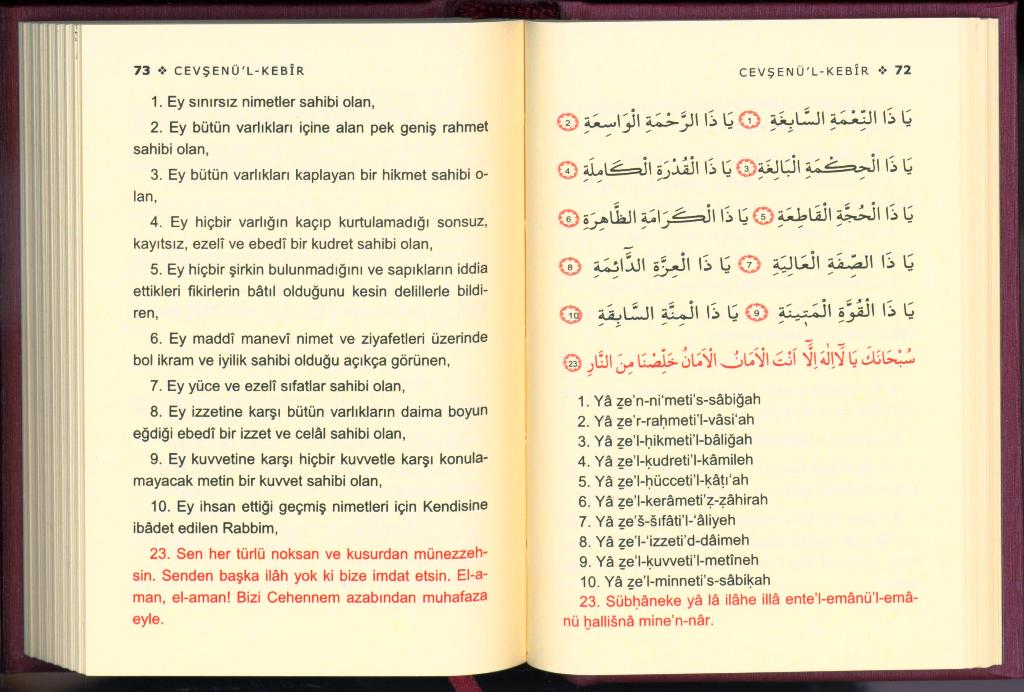 CEVŞENÜ'L-KEBÎR ❖ 72
يَا ذَا النِّعْمَةِ السَّابِغَةِ ﴿1﴾ يَا ذَا الرَّحْمَةِ الْوَاسِعَةِ ﴿2﴾
يَا ذَا الْحِكْمَةِ الْبَالِغَةِ ﴿3﴾ يَا ذَا الْقُدْرَةِ الْكَامِلَةِ ﴿4﴾
يَا ذَا الْحُجَّةِ الْقَاطِعَةِ ﴿5﴾ يَا ذَا الْكَرَامَةِ الظَّاهِرَةِ ﴿6﴾
يَا ذَا الصِّفَةِ الْعَالِيَةِ ﴿7﴾ يَا ذَا الْعِزَّةِ الدَّٓائِمَةِ ﴿8﴾
يَا ذَا الْقُوَّةِ الْمَتِينَةِ ﴿9﴾ يَا ذَا الْمِنَّةِ السَّابِقَةِ ﴿10﴾
سُبْحَانَكَ يَا لَٓا اِلٰهَ اِلَّٓا اَنْتَ الْاَمَانُ الْاَمَانُ خَلِّصْنَا مِنَ النَّارِ ﴿23﴾
1. Yâ ẕe'n-ni‘meti's-sâbiğah
2. Yâ ẕe'r-raḥmeti'l-vâsi‘ah
3. Yâ ẕe'l-ḥikmeti'l-bâliğah
4. Yâ ẕe'l-ḳudreti'l-kâmileh
5. Yâ ẕe'l-ḥücceti'l-ḳâṭı‘ah
6. Yâ ẕe'l-kerâmeti'ẓ-ẓâhirah
7. Yâ ẕe'š-šıfâti'l-‘âliyeh
8. Yâ ẕe'l-‘izzeti'd-dâimeh
9. Yâ ẕe'l-ḳuvveti'l-metîneh
10. Yâ ẕe'l-minneti's-sâbiḳah
23. Sübḥâneke yâ lâ ilâhe illâ ente'l-emânü'l-emâ-
nü ḫallišnâ mine'n-nâr.
73 ❖ CEVŞENÜ'L-KEBÎR
1. Ey sınırsız nimetler sahibi olan,
2. Ey bütün varlıkları içine alan pek geniş rahmet
sahibi olan,
3. Ey bütün varlıkları kaplayan bir hikmet sahibi o-
lan,
4. Ey hiçbir varlığın kaçıp kurtulamadığı sonsuz,
kayıtsız, ezelî ve ebedî bir kudret sahibi olan,
5. Ey hiçbir şirkin bulunmadığını ve sapıkların iddia
ettikleri fikirlerin bâtıl olduğunu kesin delillerle bildi-
ren,
6. Ey maddî manevî nimet ve ziyafetleri üzerinde
bol ikram ve iyilik sahibi olduğu açıkça görünen,
7. Ey yüce ve ezelî sıfatlar sahibi olan,
8. Ey izzetine karşı bütün varlıkların daima boyun
eğdiği ebedî bir izzet ve celâl sahibi olan,
9. Ey kuvvetine karşı hiçbir kuvvetle karşı konula-
mayacak metin bir kuvvet sahibi olan,
10. Ey ihsan ettiği geçmiş nimetleri için Kendisine
ibâdet edilen Rabbim,
23. Sen her türlü noksan ve kusurdan münezzeh-
sin. Senden başka ilâh yok ki bize imdat etsin. El-a-
man, el-aman! Bizi Cehennem azabından muhafaza
eyle.